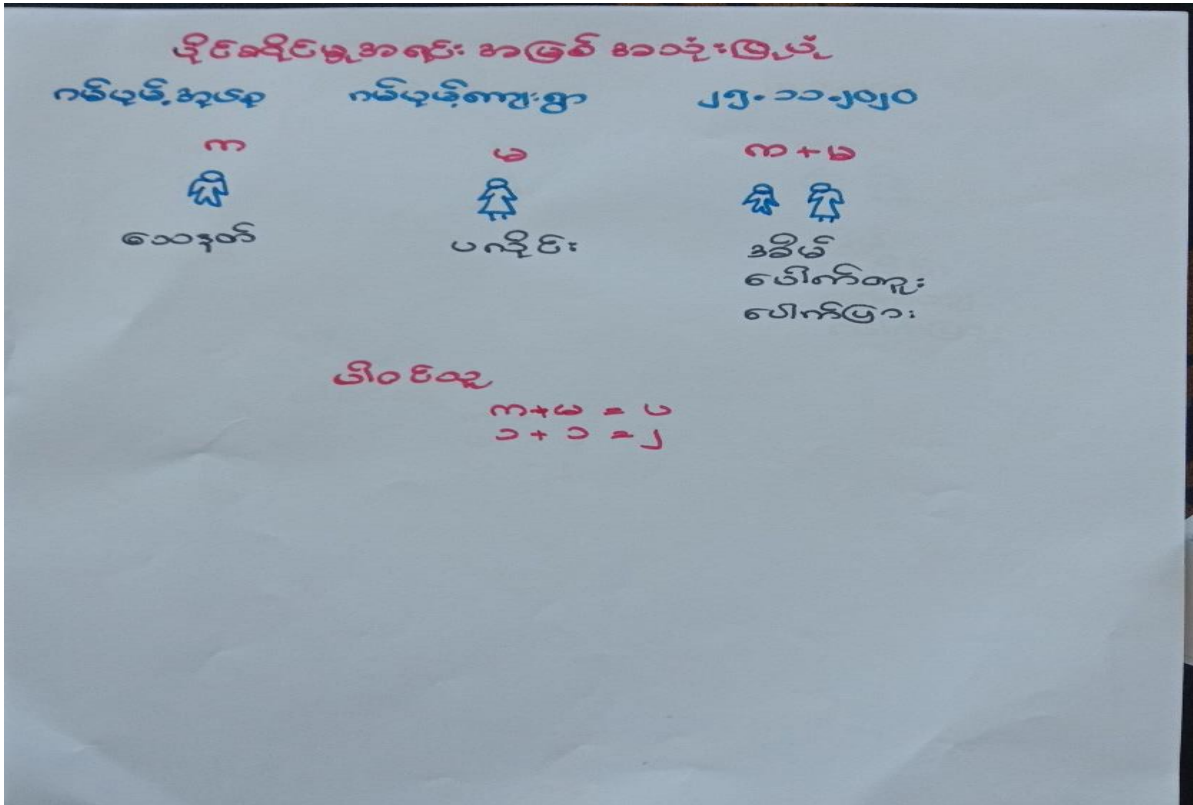 ပိုင်ဆိုင်မှုအရင်း အမြစ် အသုံးပြုပုံ
ဂမ်ပုမ့်ကျေးရွာ ၂၅.၁၁.၂၀၂၀
က မ က + မ
သေနတ် ပလိုင်း အိမ်
ပေါက်တူး
ပေါက်ပြား
ပါဝင်သူ
က+မ = ပ
၁ + ၁ = ၂